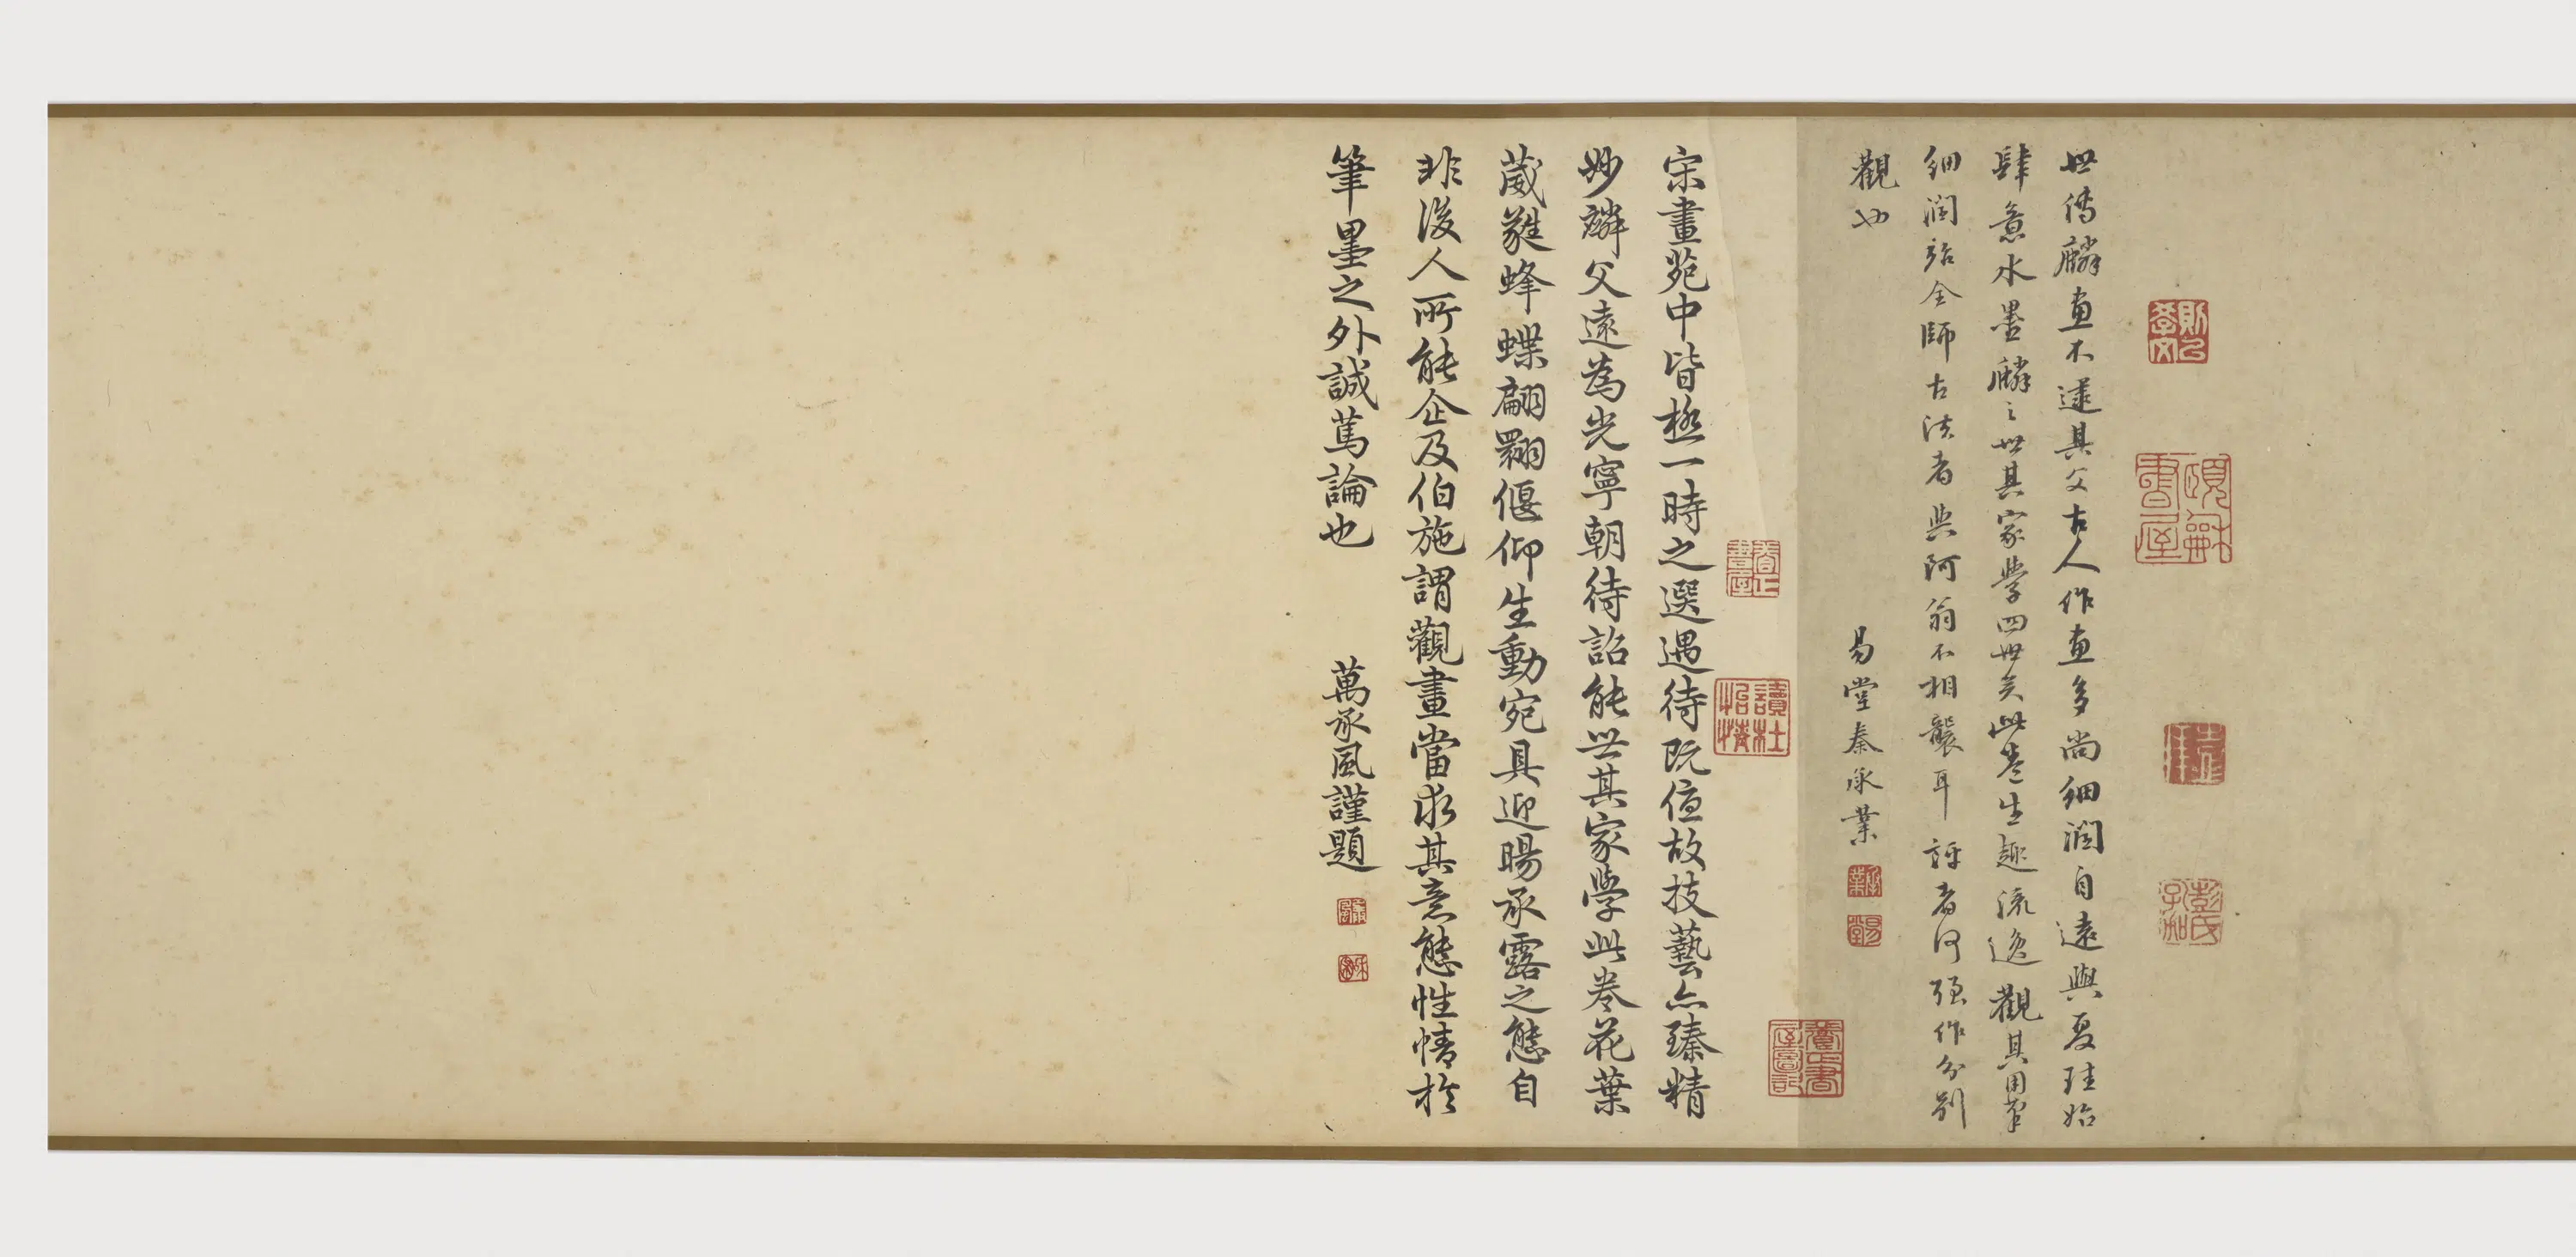 世傳麟畫不逮其父古人作畫多尚細潤自遠與夏珪始
肆意水墨麟之世其家學四世矣此卷生趣流逸觀其用筆
細潤殆全師古法者與阿翁不相襲耳評者何強作分別
觀也
易堂秦承業
宋畫苑中皆極一時之選遇待既優故技藝亦臻精
妙麟父遠為光寧朝待詔能世其家學此卷花葉
葳蕤蜂蝶翩翾偃仰生動宛具迎暘承露之態自
非後人所能企及伯施謂觀畫當求其意態性情於
筆墨之外誠篤論也
萬承風謹題
讀杜怡情
養正書屋